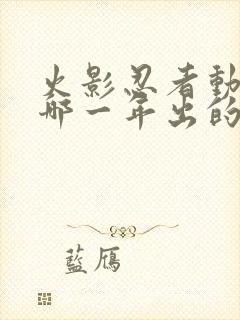 火影忍者動
哪一年出的
藍鴈